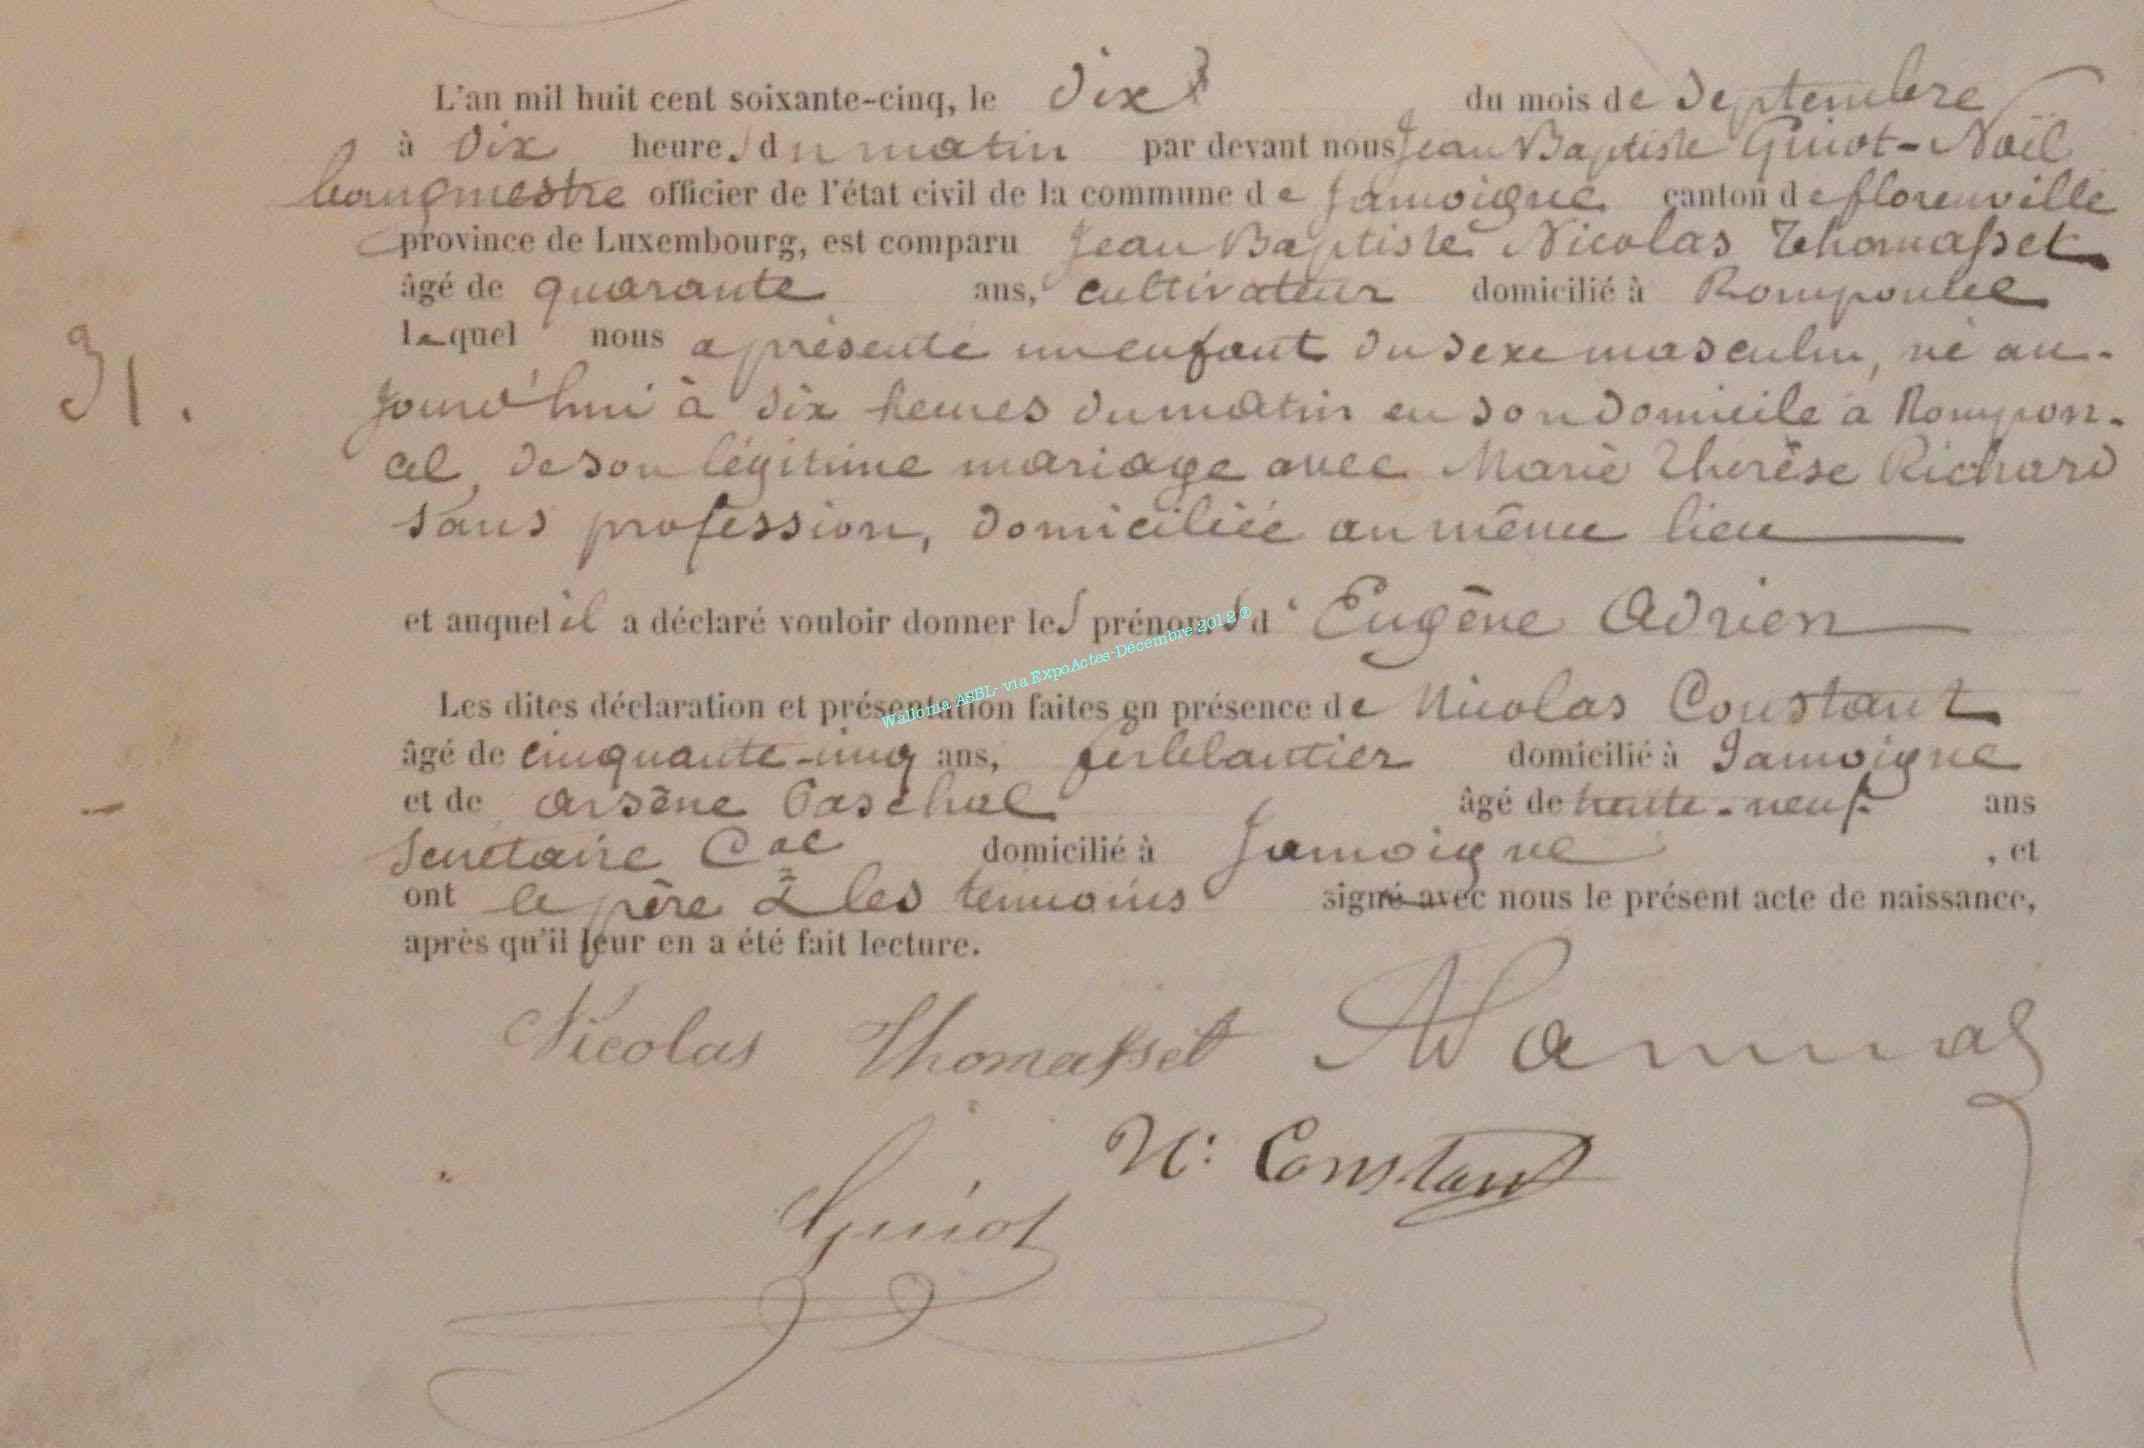 L'an mil huit cent soixante-cinq, le dix du mois de Septembre
à dix heures du matin par devant nous Jean Baptiste Guiot-Noël
bourgmestre officier de l'état civil de la commune de Jamoigne canton de florenville
province de Luxembourg, est comparu Jean Baptiste Nicolas Thomasset
âgé de quarante ans, cultivateur domicilié à Romponcel
lequel nous a présenté un enfant du sexe masculin, né au-
31. jourd'hui à six heures du matin en son domicile à Rompon-
cel, de son légitime mariage avec Marie Therèse Richard
sans profession, domiciliée au même lieu
et auquel il a déclaré vouloir donner les prénoms d' Eugène Adrien
Wallonia ASBL- via ExpoActes-Décembre 2012 ®
Les dites déclaration et présentation faites en présence de Nicolas Constant
âgé de cinquante-cinq ans, ferblantier domicilié à Jamoigne
et de Arsène Paschal âgé de trente-neuf ans
Secrétaire Cal domicilié à Jamoigne , et
ont le père & les témoins signé avec nous le présent acte de naissance,
après qu'il leur en a été fait lecture.
Nicolas Thomasset
N: Constant
Guiot